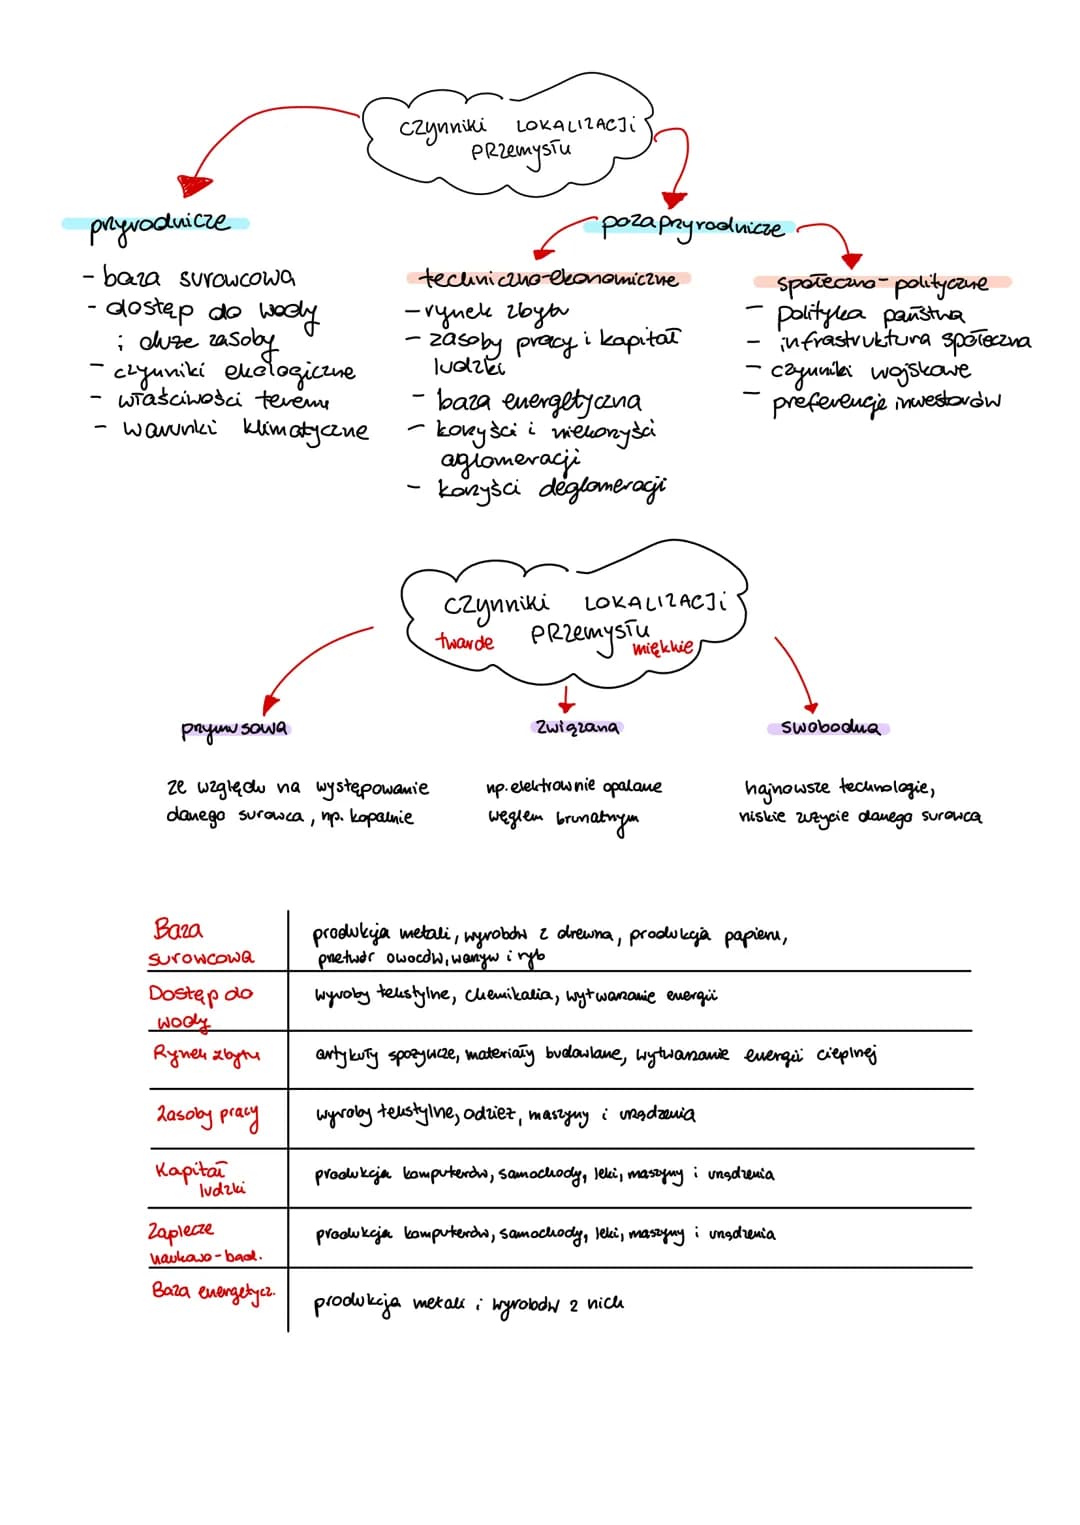 czynniki LOKALIZACJi
PRZemysłu
przyrodnicze
pozaprzyrodnicze
- baza surowcowa
- dostęp do wody
i duże zasoby
- czynniki ekologiczne
- właściwości terenu
- warunki klimatyczne
techniczno-ekonomiczne
- rynek zbytu
- zasoby pracy i kapitał
ludzki
- baza energetyczna
- korzyści i niekorzyści
aglomeracji
- korzyści deglomeracji
społeczno-polityczne
- polityka państwa
- infrastruktura społeczna
- czynniki wojskowe
- preferencje inwestorów
czynniki LOKALIZACJi
PRZemysłu
twarde
miękkie
przymusowa
związana
swobodna
ze względu na występowanie
danego surowca, np. kopalnie
np. elektrownie opalane
węglem brunatnym
najnowsze technologie,
niskie zużycie danego surowca
Baza
surowcowa
produkcja metali, wyrobów z drewna, produkcja papieru,
przetwór owoców, warzyw i ryb
Dostęp do
wody
wyroby tekstylne, chemikalia, wytwarzanie energii
Rynek zbytu
artykuły spożywcze, materiały budowlane, wytwarzanie energii cieplnej
Zasoby pracy
wyroby tekstylne, odzież, maszyny i urządzenia
Kapitał
ludzki
produkcja komputerów, samochody, leki, maszyny i urządzenia
Zaplecze
naukowo-bad.
produkcja komputerów, samochody, leki, maszyny i urządzenia
Baza energetycz.
produkcja metali i wyrobów z nich